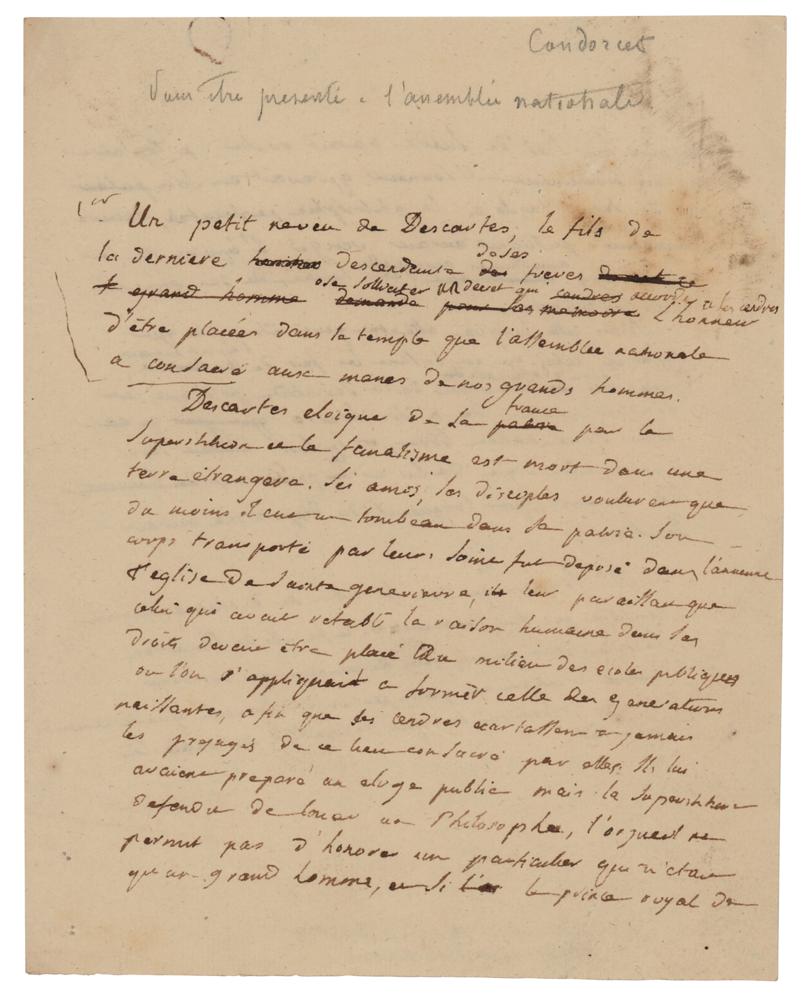 Condorcet
Pour être presenté a l'assemblée nationale
Un petit neveu de Descartes, le fils de
la derniere descendante de ses freres
ose solliciter un decret qui accorde a les cendres l'honneur
d'être placées dans le temple que l'assemblée nationale
a consacré aux manes de nos grands hommes.
Descartes eloigné de la france par la
superstition et le fanatisme est mort dans une
terre étrangere. Ses amis, ses disciples voulurent que
du moins il eut un tombeau dans sa patrie. Son
corps transporté par leurs soins fut deposé dans l'ancienne
eglise de Sainte genevieve, il leur paraissait que
celui qui avait retabli la raison humaine dans ses
droits devait être placé au milieu des ecoles publiques
ou l'on s'appliquait a former celle des generations
naissantes, afin que ses cendres ecartassent a jamais
les prejugés de ce lieu consacré par elles. Ils lui
avaient preparé un eloge public mais la superstition
defendit de louer un Philosophe, l'orgueil ne
permit pas d'honorer un particulier qui n'etait
qu'un grand homme, et si le prince royal de